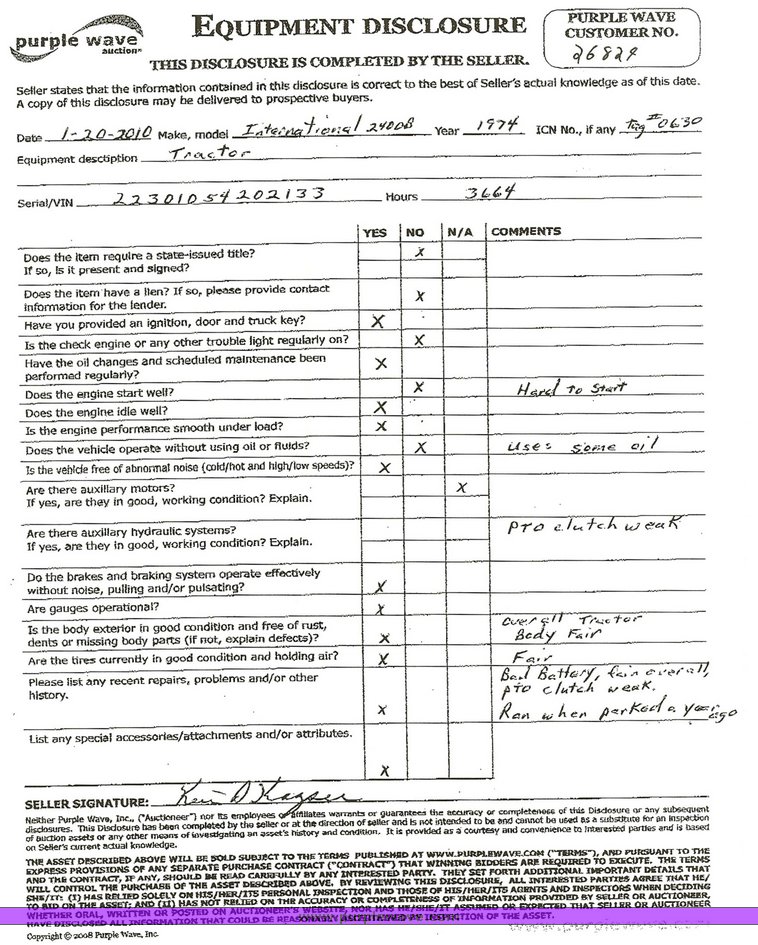 purple wave
auction®
EQUIPMENT DISCLOSURE
THIS DISCLOSURE IS COMPLETED BY THE SELLER.
PURPLE WAVE
CUSTOMER NO.
26829
Seller states that the information contained in this disclosure is correct to the best of Seller's actual knowledge as of this date.
A copy of this disclosure may be delivered to prospective buyers.
Date 1-20-2010 Make, model International 2400B Year 1974 ICN No., if any Tag # 0630
Equipment description Tractor
Serial/VIN 22301054202133 Hours 3664
YES NO N/A COMMENTS
Does the item require a state-issued title? X
If so, is it present and signed?
Does the item have a lien? If so, please provide contact
information for the lender. X
Have you provided an ignition, door and truck key? X
Is the check engine or any other trouble light regularly on? X
Have the oil changes and scheduled maintenance been
performed regularly? X
Does the engine start well? X Hard to Start
Does the engine idle well? X
Is the engine performance smooth under load? X
Does the vehicle operate without using oil or fluids? X Uses some oil
Is the vehicle free of abnormal noise (cold/hot and high/low speeds)? X
Are there auxillary motors? X
If yes, are they in good, working condition? Explain.
Are there auxillary hydraulic systems? PTO clutch weak
If yes, are they in good, working condition? Explain.
Do the brakes and braking system operate effectively
without noise, pulling and/or pulsating? X
Are gauges operational? X
Is the body exterior in good condition and free of rust, Overall Tractor
dents or missing body parts (if not, explain defects)? X Body Fair
Are the tires currently in good condition and holding air? X Fair
Please list any recent repairs, problems and/or other Bad Battery, fair overall,
history. PTO clutch weak.
X Ran when parked a year ago
List any special accessories/attachments and/or attributes.
X
SELLER SIGNATURE:
Neither Purple Wave, Inc., ("Auctioneer") nor its employees or affiliates warrants or guarantees the accuracy or completeness of this Disclosure or any subsequent
disclosures. This Disclosure has been completed by the seller or at the direction of seller and is not intended to be and cannot be used as a substitute for an inspection
of auction assets or any other means of investigating an asset's history and condition. It is provided as a courtesy and convenience to interested parties and is based
on Seller's current actual knowledge.
THE ASSET DESCRIBED ABOVE WILL BE SOLD SUBJECT TO THE TERMS PUBLISHED AT WWW.PURPLEWAVE.COM ("TERMS"), AND PURSUANT TO THE
EXPRESS PROVISIONS OF ANY SEPARATE PURCHASE CONTRACT ("CONTRACT") THAT WINNING BIDDERS ARE REQUIRED TO EXECUTE. THE TERMS
AND THE CONTRACT, IF ANY, SHOULD BE READ CAREFULLY BY ANY INTERESTED PARTY. THEY SET FORTH ADDITIONAL IMPORTANT DETAILS THAT
WILL CONTROL THE PURCHASE OF THE ASSET DESCRIBED ABOVE. BY REVIEWING THIS DISCLOSURE, ALL INTERESTED PARTIES AGREE THAT HE/
SHE/IT: (I) HAS RELIED SOLELY ON HIS/HER/ITS PERSONAL INSPECTION AND THOSE OF HIS/HER/ITS AGENTS AND INSPECTORS WHEN DECIDING
TO BID ON THE ASSET; AND (II) HAS NOT RELIED ON THE ACCURACY OR COMPLETENESS OF INFORMATION PROVIDED BY SELLER OR AUCTIONEER,
WHETHER ORAL, WRITTEN OR POSTED ON AUCTIONEER'S WEBSITE, NOR HAS HE/SHE/IT ASSUMED OR EXPECTED THAT SELLER OR AUCTIONEER
HAVE DISCLOSED ALL INFORMATION THAT COULD BE REASONABLY ASCERTAINED BY INSPECTION OF THE ASSET.
www.purplewave.com
Copyright © 2008 Purple Wave, Inc.